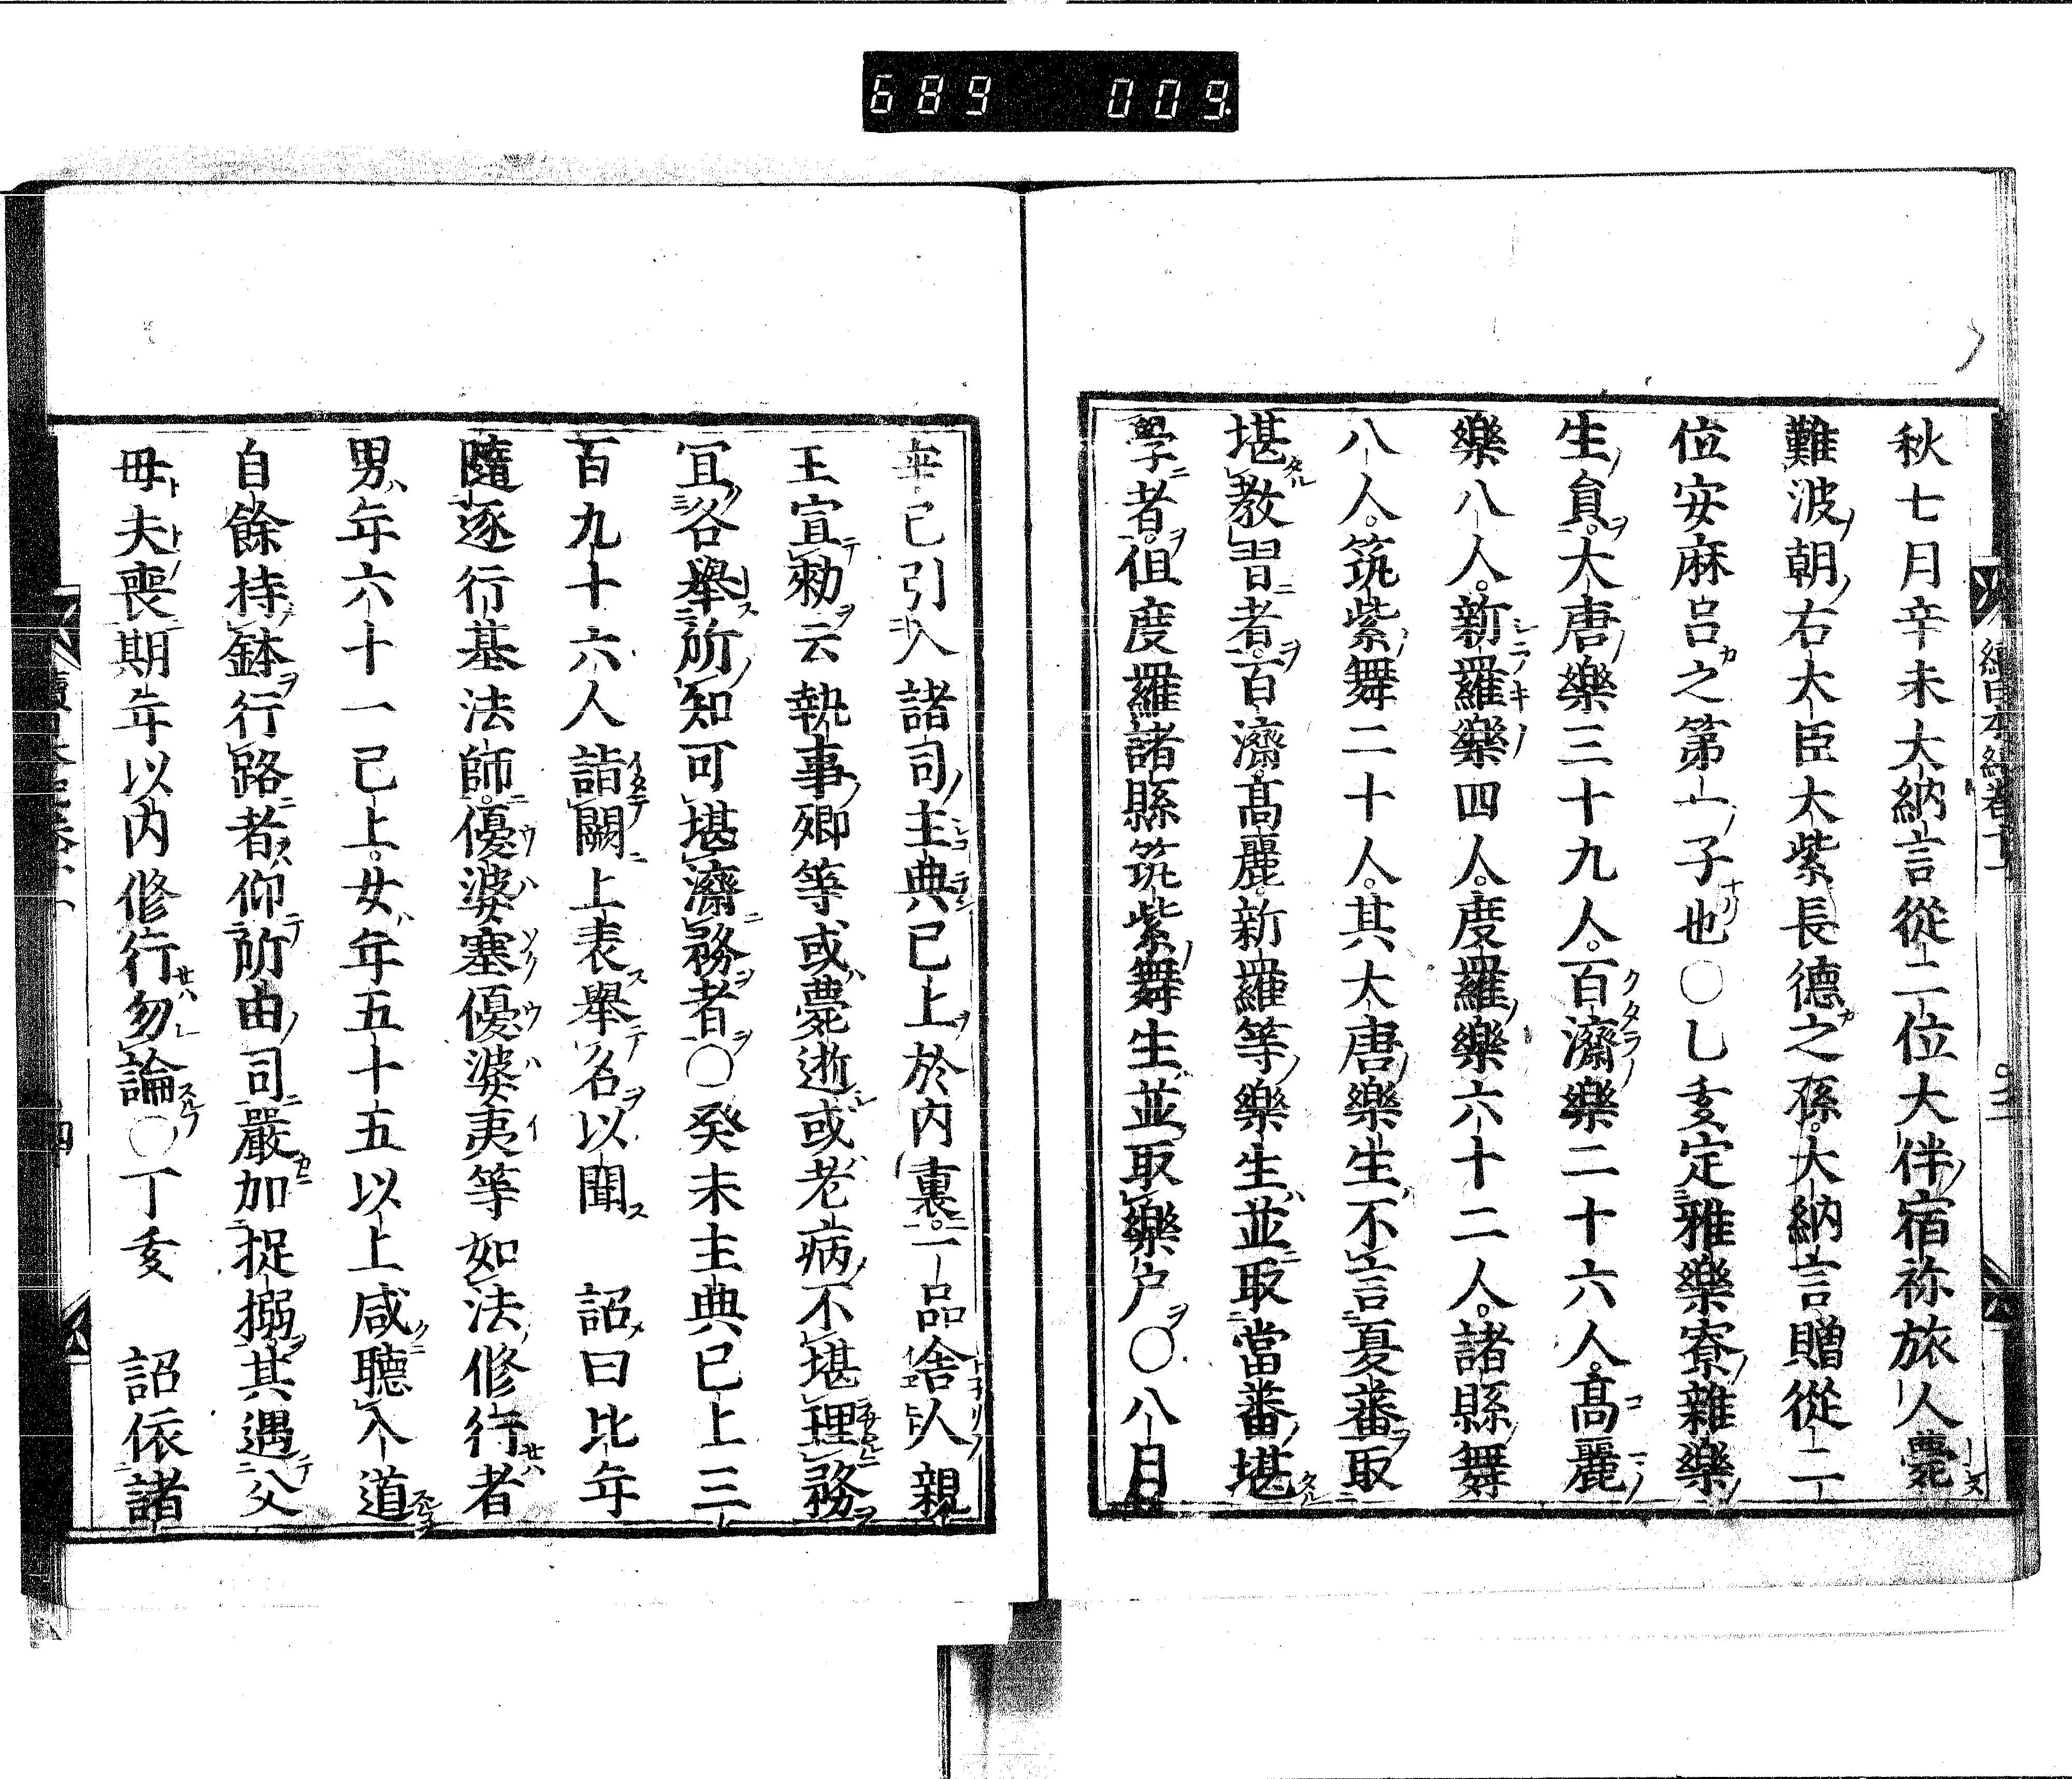 689 009
秋七月辛未大納言從二位大伴宿祢旅人薨
難波朝右大臣大紫長德之孫。大納言贈從二
位安麻呂之第一子也○乙亥定雅樂寮雜樂
生員。大唐樂三十九人。百濟樂二十六人。高麗
樂八人。新羅樂四人。度羅樂六十二人。諸縣舞
八人。筑紫舞二十人。其大唐樂生不言夏蕃取
堪教習者。百濟。高麗。新羅等樂生並取當蕃堪
學者。但度羅諸縣筑紫舞生並取樂户○八月
辛巳引入諸司主典已上於内裏。一品舍人親
王宣勑云執事卿等或薨逝或老病不堪理務
宜各舉所知可堪濟務者○癸未主典已上三
百九十六人詣闕上表舉名以聞 詔曰比年
隨逐行基法師。優婆塞優婆夷等如法修行者
男年六十一已上。女年五十五以上咸聽入道
自餘持鉢行路者仰所由司嚴加捉搦其遇父
母夫喪期年以内修行勿論○丁亥 詔依諸